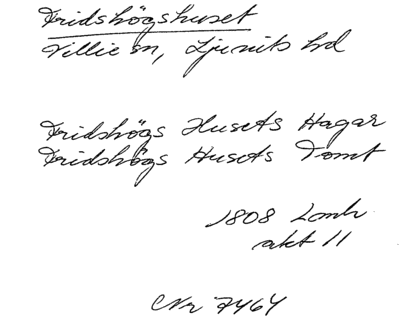 Fridshögshuset
Villie sn, Ljunits hd
Fridshögs Husets Hagar
Fridshögs Husets Tomt
1808 Lmh
akt 11
Nr 7464